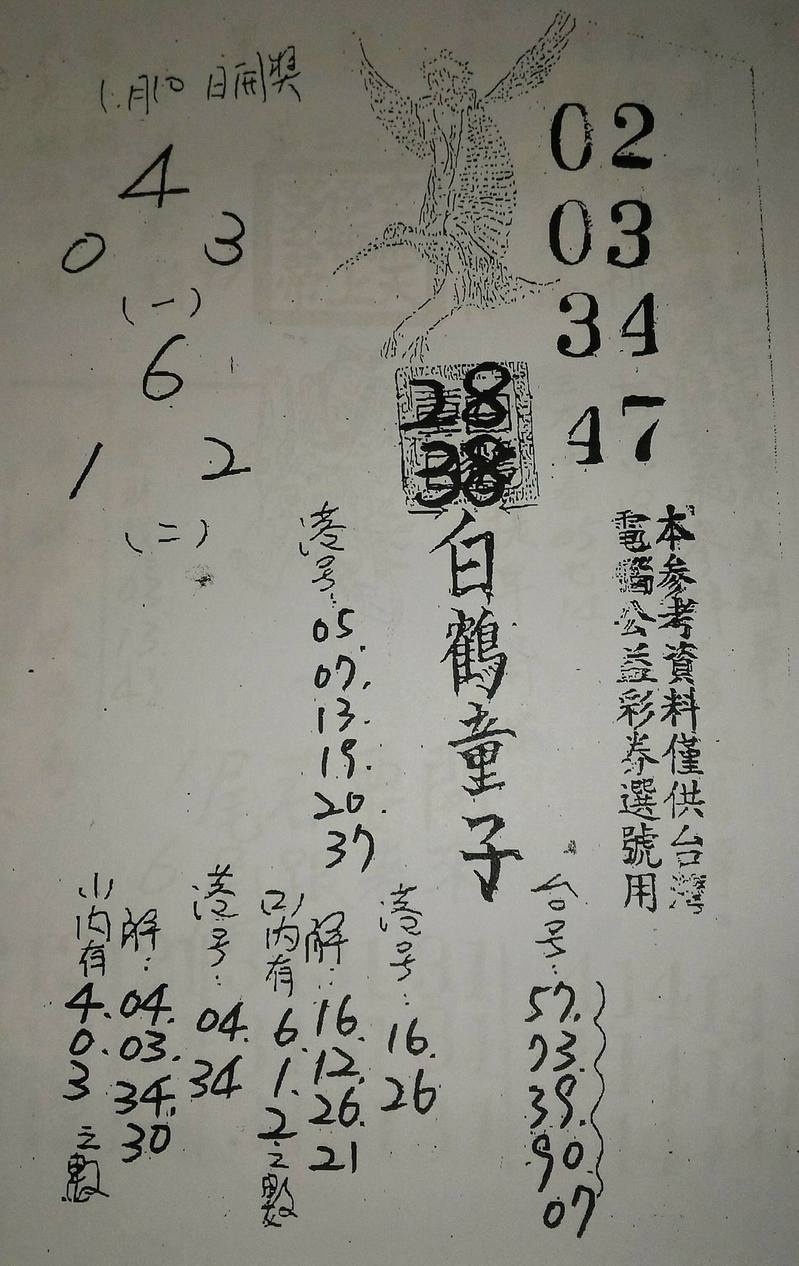 1.月10日開獎
4
0 3
(一)
6
1 2
(二)
02
03
34
47
28
38
白鶴童子
本參考資料僅供台灣
電腦公益彩券選號用
港号:
05.
07.
13.
19.
20.
37
台号:
57.
73.
39.
90.
07
港号:
16.
26
解:
16.
12.
26.
21
(2)內有
6.
1.
2
之數
港号:
04.
34
解:
04.
03.
34.
30
(1)內有
4.
0.
3
之數